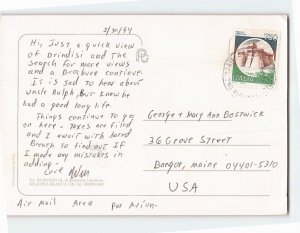 3/30/94
Hi, Just a quick view
of Brindisi and the
search for more views
and a Brochure continue.
It is sad to hear about
uncle Ralph, but knew he
had a good long life.
Things continue to go
on here + taxes are filed
and I await with bated
Breath to find out If
I made any mistakes in
adding.
Love
George + Mary Ann Bostwick
36 Grove Street
Bangor, Maine 04401-5310
USA
Air Mail Area Par Avion.